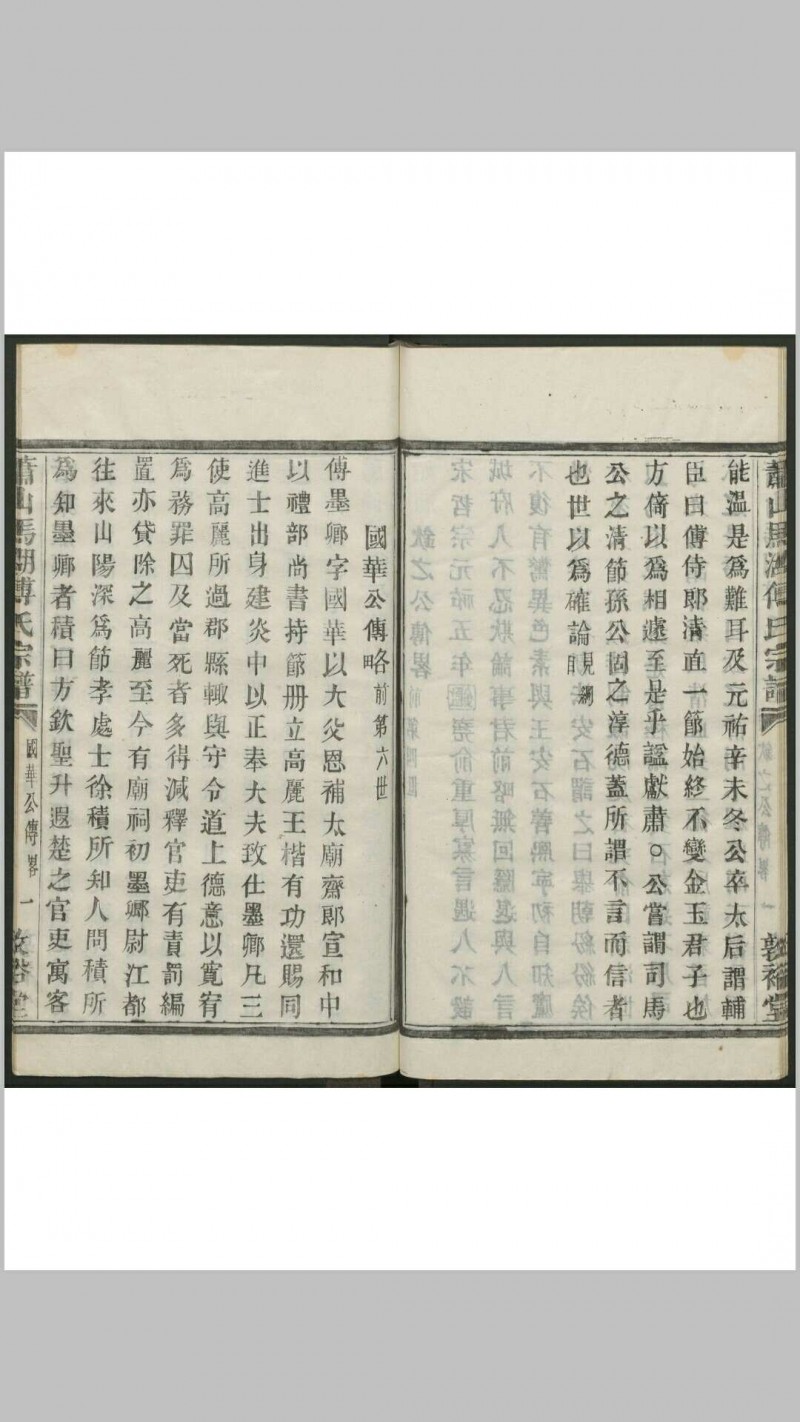 能溫是爲難耳及元祐辛未冬公卒太后謂輔
臣曰傅侍郎清直一節始終不變金玉君子也
方倚以爲相遽至是乎諡獻肅○公嘗謂司馬
公之清節孫公固之淳德蓋所謂不言而信者
也世以爲確論見綱目
國華公傳略前第六世
傅墨卿字國華以大父恩補太廟齋郎宣和中
以禮部尚書持節册立高麗王楷有功還賜同
進士出身建炎中以正奉大夫致仕墨卿凡三
使高麗所過郡縣輙與守令道上德意以寬宥
爲務罪囚及當死者多得減釋官吏有責罰編
置亦貸除之高麗至今有廟祠初墨卿尉江都
往來山陽深爲節孝處士徐積所知人問積所
爲知墨卿者積曰方欽聖升遐楚之官吏寓客
蕭山馬湖傅氏宗譜
國華公傳畧
一
敦裕堂